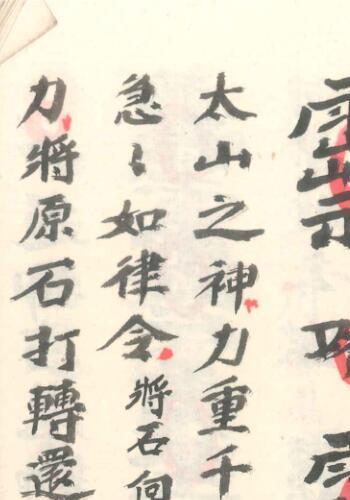 太山之神力重千
急〻如律令將石向
力將原石打轉還